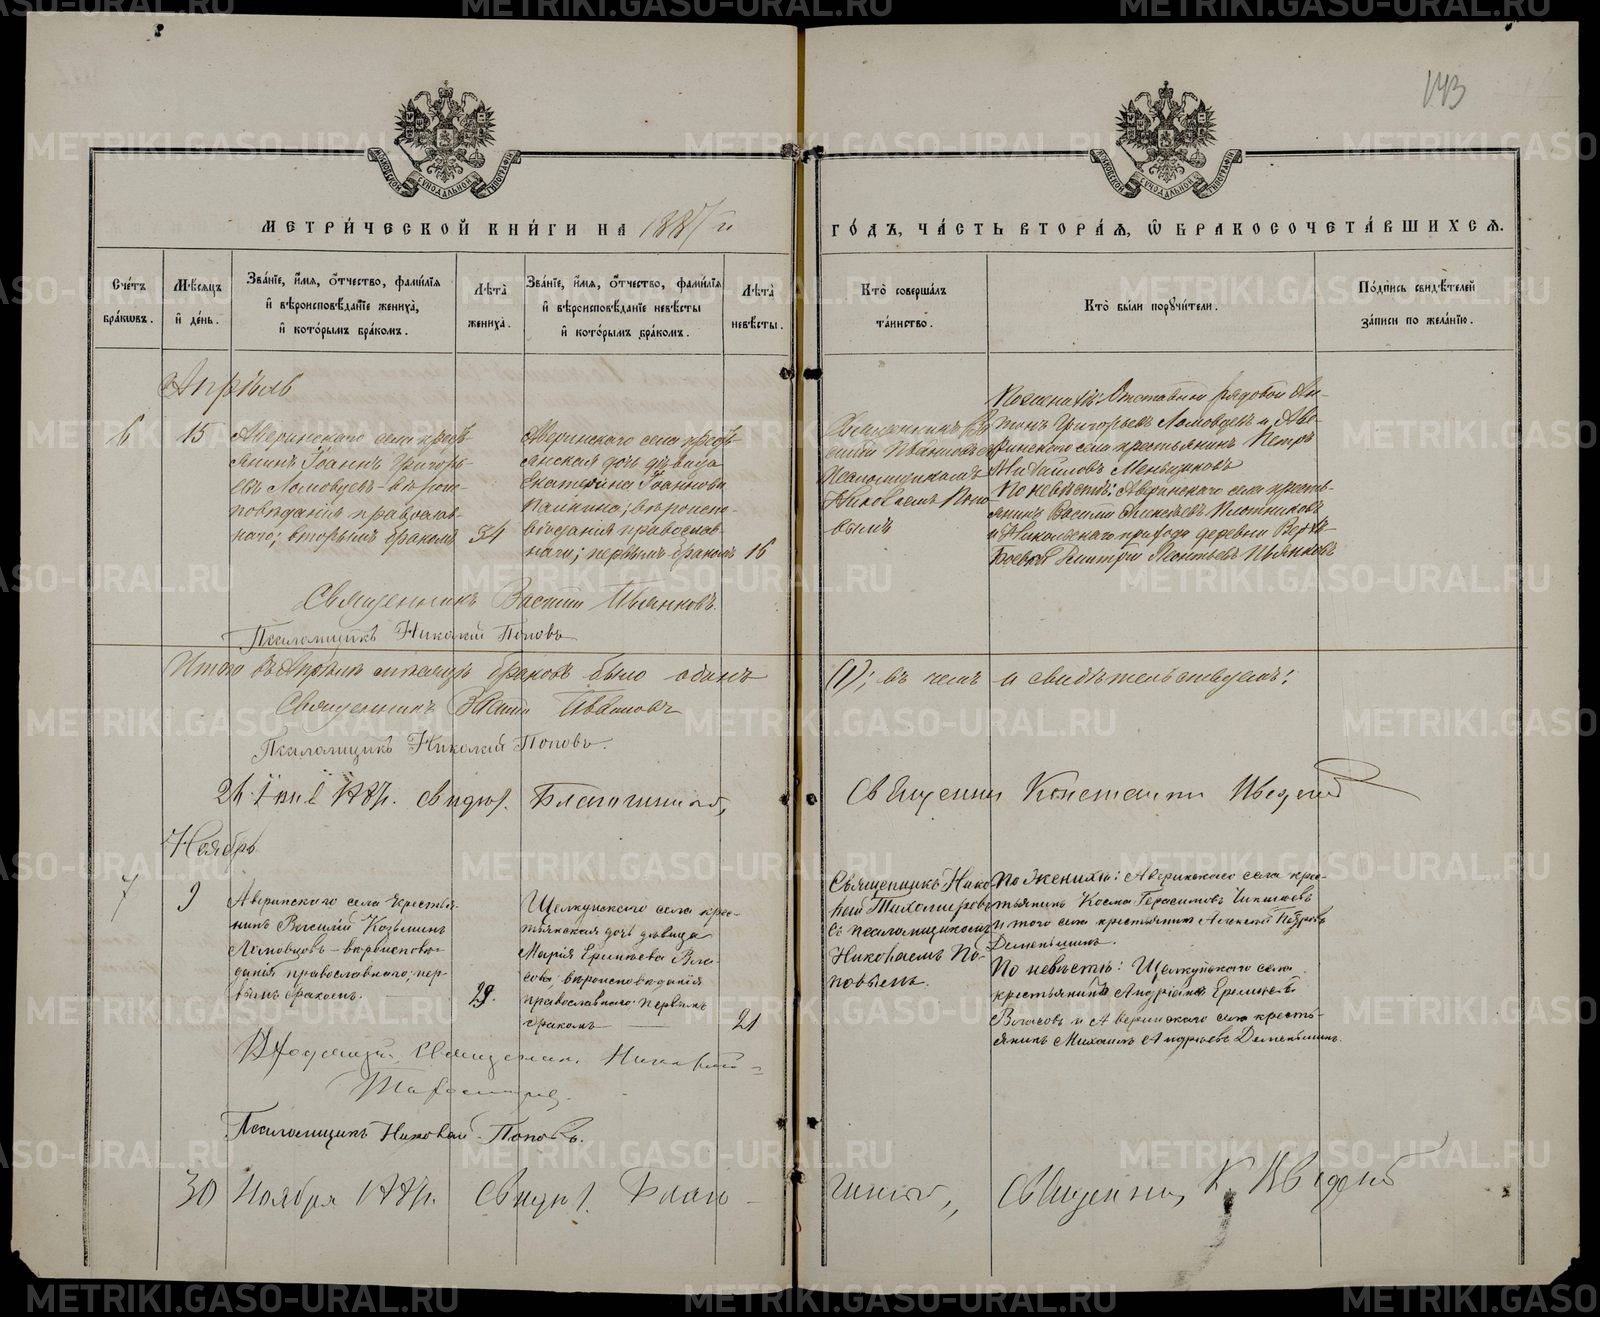 143
МЕТРИЧЕСКОЙ КНИГИ НА 1887 й
ГОДЪ, ЧАСТЬ ВТОРАЯ, Ѡ БРАКОСОЧЕТАВШИХСЯ.
Счетъ браковъ.
Мѣсяцъ и день.
Званіе, имя, отчество, фамилія и вѣроисповѣданіе жениха, и которымъ бракомъ.
Лѣта жениха.
Званіе, имя, отчество, фамилія и вѣроисповѣданіе невѣсты и которымъ бракомъ.
Лѣта невѣсты.
Кто совершалъ таинство.
Кто были поручители.
Подпись свидѣтелей записи по желанію.
Апрѣль
6
15
Аверинскаго села кресть-
янинъ Іоаннъ Григорь-
евъ Ломовцевъ - вѣроис-
повѣданія православ-
наго; вторымъ бракомъ
34
Аверинскаго села кресть-
янская дочь дѣвица
Екатерина Іоаннова
вѣроиспо-
вѣданія православ-
наго; первымъ бракомъ
16
Священникъ
Псаломщикомъ
Николаемъ Попо-
вымъ
По женихѣ: Отставной рядовой Ан-
тонъ Григорьевъ Ломовцевъ и Аве-
ринскаго села крестьянинъ Петръ
Михаиловъ Меньшиковъ
По невѣстѣ: Аверинскаго села кресть-
янинъ Василій Алексѣевъ Плотниковъ
и Никольскаго прихода деревни Верхъ-
Боевой Димитрій Леонтьевъ Пьянковъ
Священникъ
Псаломщикъ Николай Поповъ
Итого въ Апрѣлѣ мѣсяцѣ браковъ было одинъ
(1); въ чемъ и свидѣтельствуемъ:
Священникъ
Псаломщикъ Николай Поповъ.
1887. свидѣт. Благочинный,
Священникъ Константинъ
Ноябрь
7
9
Аверинскаго села крестья-
нинъ Василій Козьминъ
Ломовцовъ - вѣроисповѣ-
данія православнаго; пер-
вымъ бракомъ.
29.
Щелкунскаго села крес-
тьянская дочь дѣвица
Марія Еремѣева Вла-
сова, вѣроисповѣданія
православнаго. первымъ
бракомъ
21
Священникъ Нико-
лай Тихомировъ
съ псаломщикомъ
Николаемъ По-
повымъ.
По женихѣ: Аверинскаго села кре-
стьянинъ Косма Герасимовъ
и того села крестьянинъ Алексѣй Петровъ
Дементьинъ.
По невѣстѣ: Щелкунскаго села
крестьянинъ Андріанъ Еремѣевъ
Власовъ и Аверинскаго села кресть-
янинъ Михаилъ Андреевъ Дементьинъ.
Священникъ Николай
Тихомировъ.
Псаломщикъ Николай Поповъ.
30 Ноября 1887. свидѣт. Благо-
чинный,
Священникъ К.
METRIKI.GASO-URAL.RU